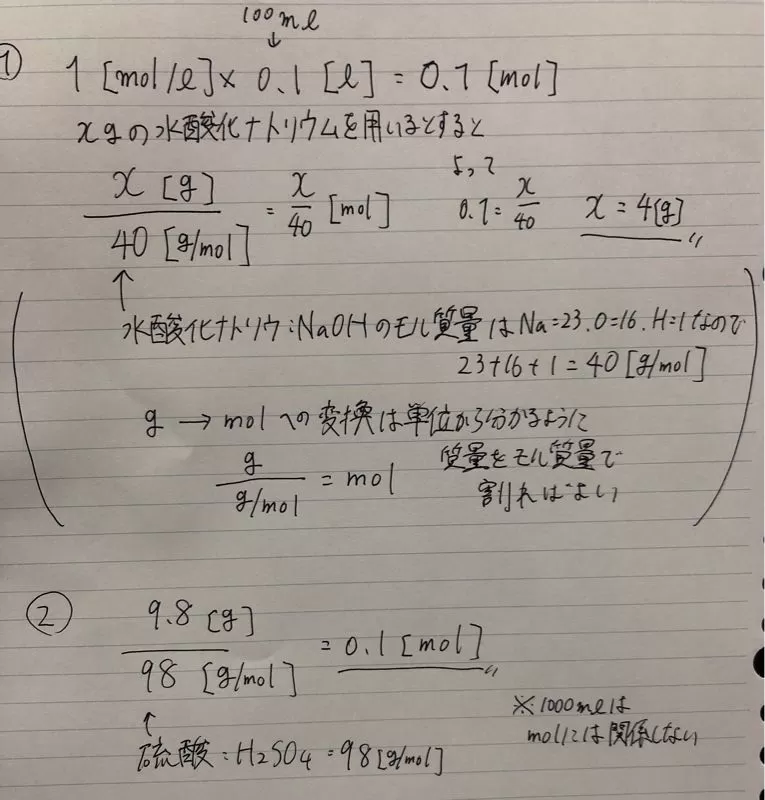 100ml
↓
① 1 [mol/l] × 0.1 [l] = 0.1 [mol]
xgの水酸化ナトリウムを用いるとすると
x [g] / 40 [g/mol] = x/40 [mol] よって 0.1 = x/40 x = 4[g]
↑
水酸化ナトリウ:NaOHのモル質量はNa=23.O=16.H=1なので
23+16+1=40[g/mol]
g → molへの変換は単位から分かるように
g / g/mol = mol 質量をモル質量で
割ればよい
② 9.8 [g] / 98 [g/mol] = 0.1 [mol]
↑
硫酸:H₂SO₄=98[g/mol]
※1000mlは
molには関係しない